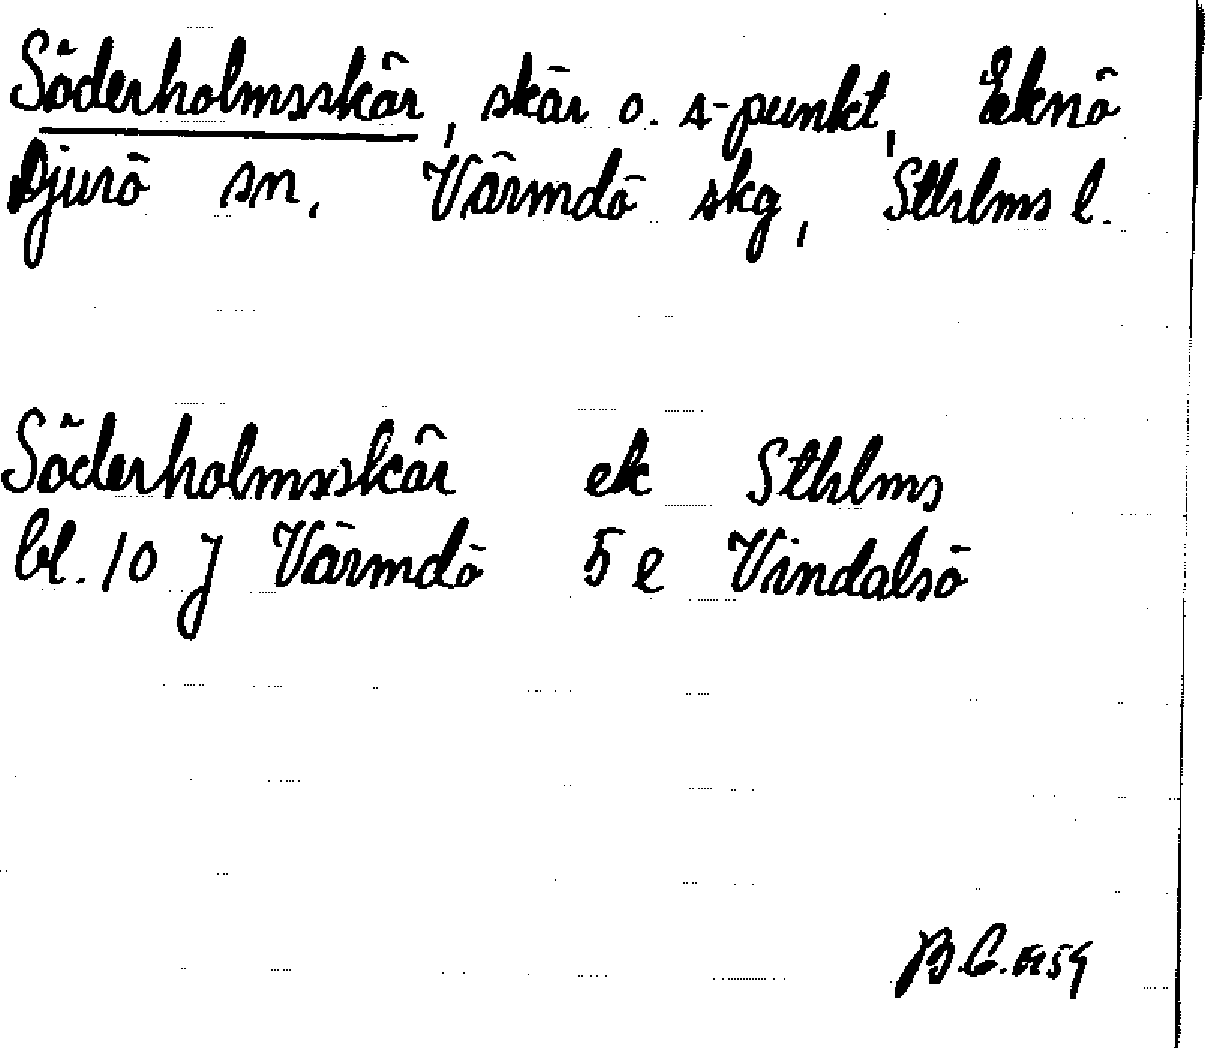 Söderholmsskär, skär o. s-punkt, Eknö
Djurö sn, Värmdö skg, Sthlms l.
Söderholmsskär ek Sthlms
bl. 10 J Värmdö 5 e Vindalsö
B.C. 1959